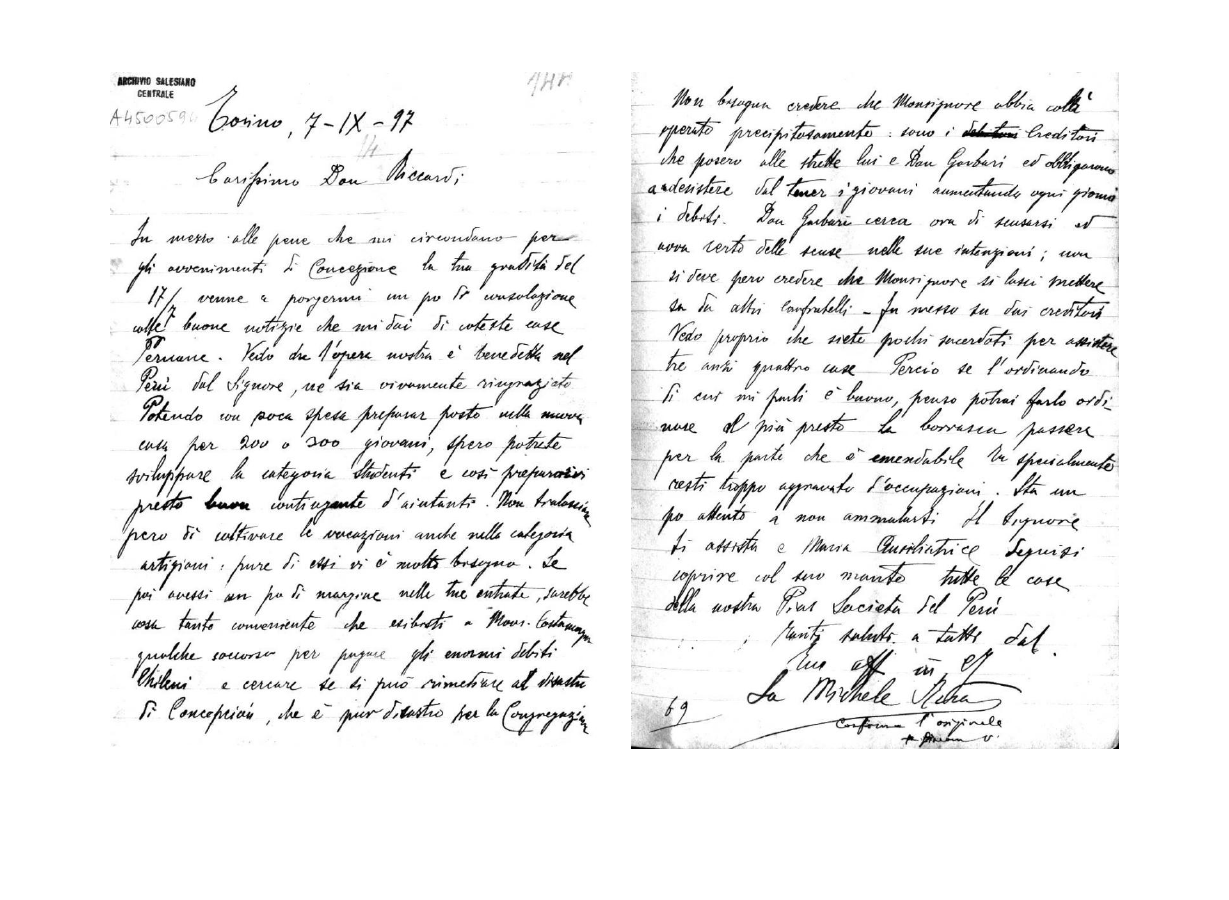 ARCHIVIO SALESIANO
CENTRALE
A450059
Torino, 7-IX-97
Carissimo Don Riccardi
In mezzo alle pene che mi circondano per
gli avvenimenti di Concezione la tua gradita del
17/7 venne a porgermi un po di consolazione
colle buone notizie che mi dai di coteste case
Peruane. Vedo che l'opera nostra è benedetta nel
Perù dal Signore, ne sia vivamente ringraziato
Potendo con poca spesa preparar posto nella nuova
casa per 200 o 300 giovani, spero potrete
sviluppare la categoria studenti e così prepararvi
presto buon contingente d'aiutanti. Non tralasciar
pero di coltivare le vocazioni anche nella categoria
artigiani: pure di essi vi è molto bisogno. Se
poi avessi un po di margine nelle tue entrate, sarebbe
cosa tanto conveniente che esibirti a Mons. Costamagna
qualche soccorso per pagare gli enormi debiti
Chileni e cercare se si può rimediare al disastro
di Concepción, che è pur disastro per la Congregazione
Non bisogna credere che Monsignore abbia colà
operato precipitosamente: sono i debitori Creditori
che posero alle strette lui e Don Garbari ed obbligarono
a desistere dal tener i giovani aumentando ogni giorno
i debiti. Don Garbari cerca ora di scusarsi ed
avrà certo delle scuse nelle sue intenzioni; non
si deve pero credere che Monsignore si lasci mettere
su da altri Confratelli - Fu messo su dai creditori
Vedo proprio che siete pochi sacerdoti per assistere
tre anzi quattro case Perciò se l'ordinando
di cui mi parli è buono, penso potrai farlo ordi-
nare al più presto la borrasca passere
per la parte che è emendabile tu specialmente
resti troppo aggravato d'occupazioni. Sta un
po attento a non ammalarti Il Signore
ti assista e Maria Ausiliatrice degnisi
coprire col suo manto tutte le case
della nostra Pias Società del Perù
Tanti saluti a tutti dal
Tuo aff in CJ
Sac Michele Rua
69
Conforme l'originale